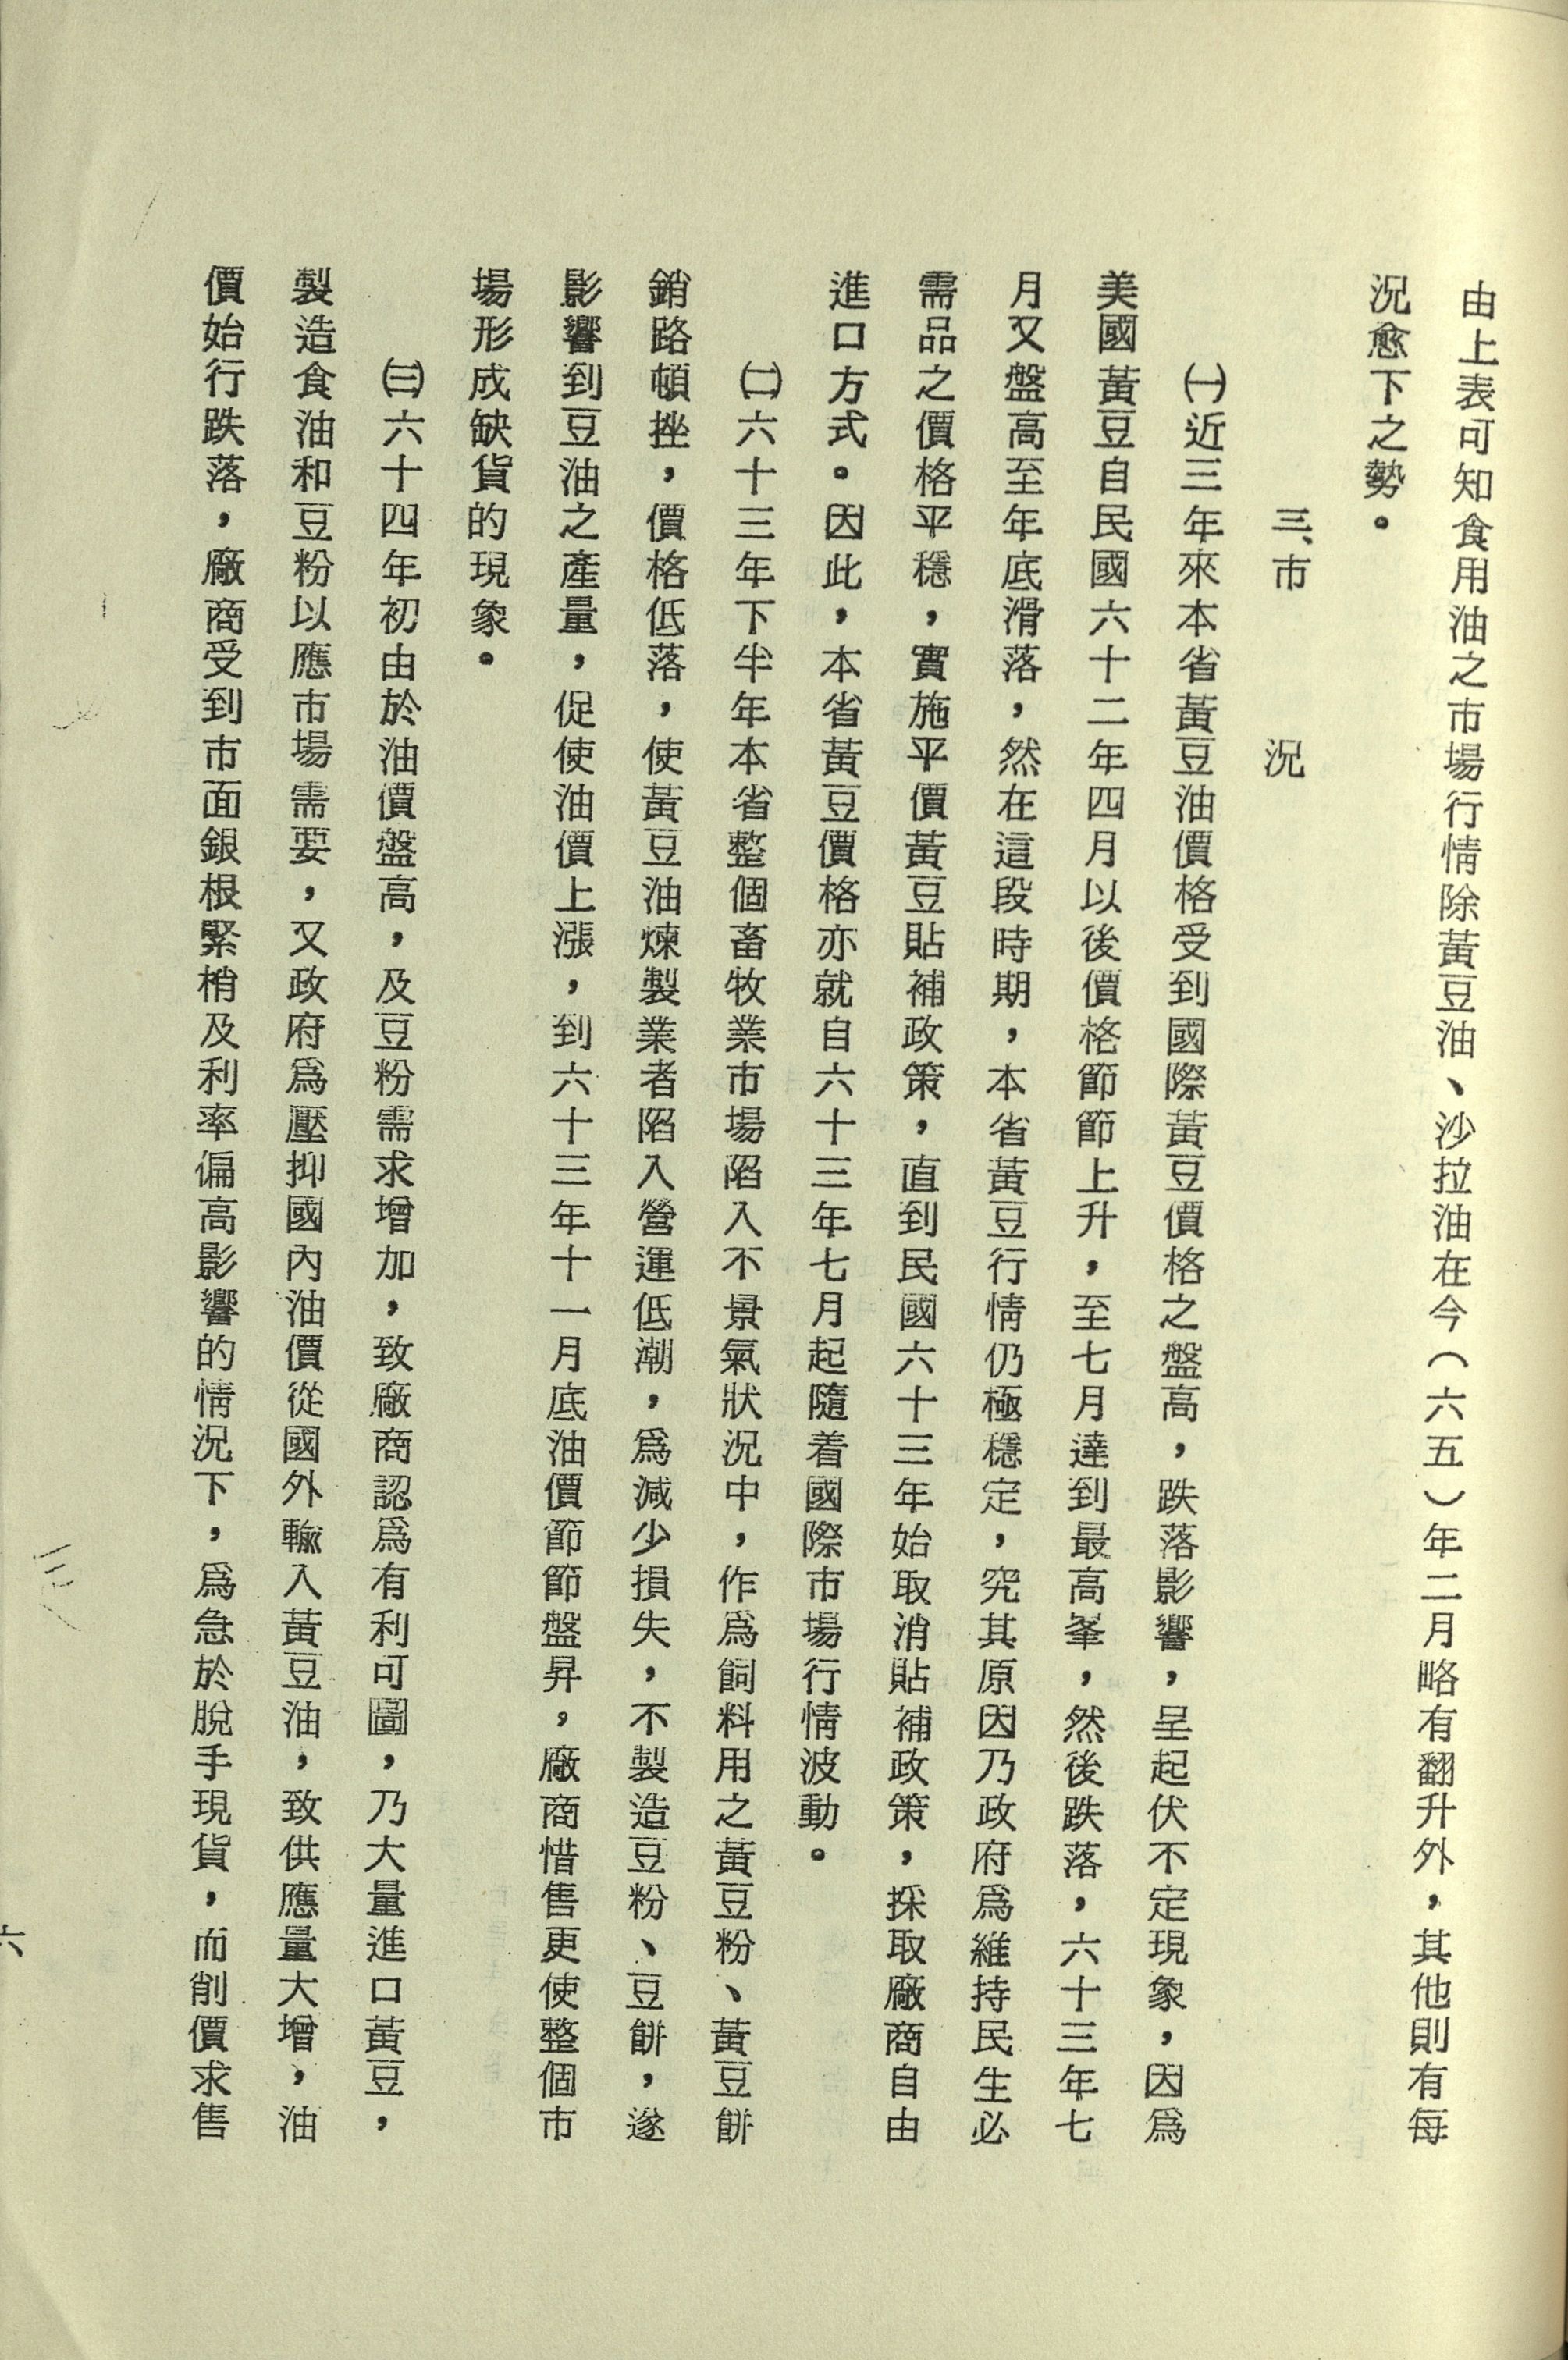 由上表可知食用油之市場行情除黃豆油、沙拉油在今（六五）年二月略有翻升外，其他則有每
況愈下之勢。
三、市況
㈠近三年來本省黃豆油價格受到國際黃豆價格之盤高，跌落影響，呈起伏不定現象，因爲
美國黃豆自民國六十二年四月以後價格節節上升，至七月達到最高峯，然後跌落，六十三年七
月又盤高至年底滑落，然在這段時期，本省黃豆行情仍極穩定，究其原因乃政府爲維持民生必
需品之價格平穩，實施平價黃豆貼補政策，直到民國六十三年始取消貼補政策，採取廠商自由
進口方式。因此，本省黃豆價格亦就自六十三年七月起隨着國際市場行情波動。
㈡六十三年下半年本省整個畜牧業市場陷入不景氣狀況中，作爲飼料用之黃豆粉、黃豆餅
銷路頓挫，價格低落，使黃豆油煉製業者陷入營運低潮，爲減少損失，不製造豆粉、豆餅，遂
影響到豆油之產量，促使油價上漲，到六十三年十一月底油價節節盤昇，廠商惜售更使整個市
場形成缺貨的現象。
㈢六十四年初由於油價盤高，及豆粉需求增加，致廠商認爲有利可圖，乃大量進口黃豆，
製造食油和豆粉以應市場需要，又政府爲壓抑國內油價從國外輸入黃豆油，致供應量大增，油
價始行跌落，廠商受到市面銀根緊梢及利率偏高影響的情況下，爲急於脫手現貨，而削價求售
六